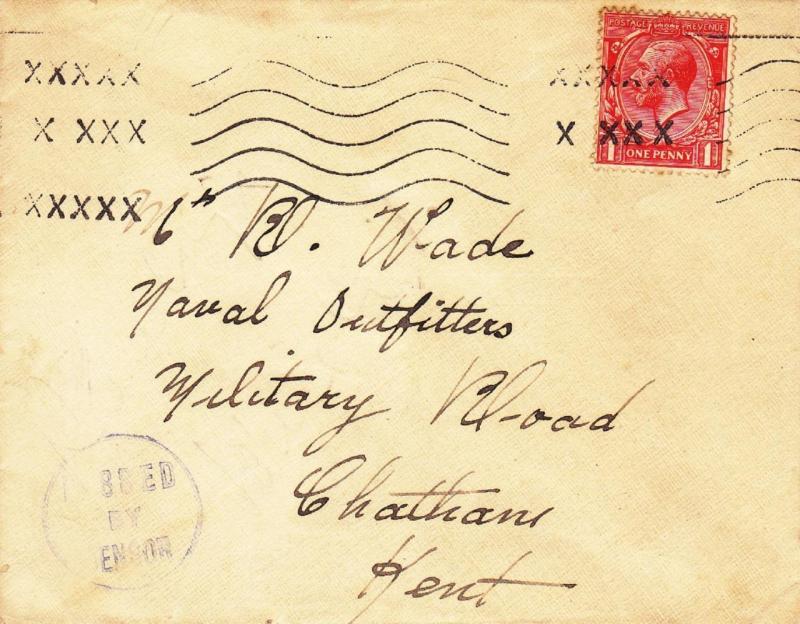 POSTAGE REVENUE
XXXXX XXXXX
X XXX X XXX
1 ONE PENNY 1
XXXXX
Mr R. Wade
Naval Outfitters
Military Road
Chatham
Kent
BY